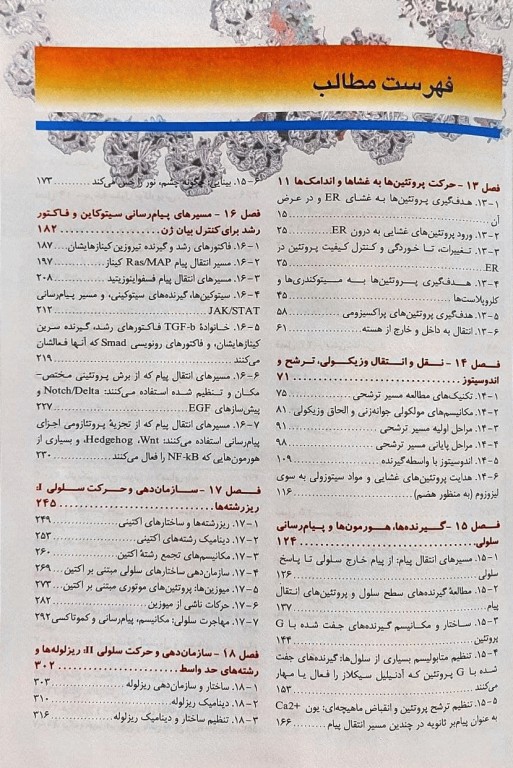 فهرست مطالب
فصل ۱۳ - حرکت پروتئین‌ها به غشاها و اندامک‌ها ۱۱
۱۳-۱. هدف‌گیری پروتئین‌ها به غشای ER و در عرض
آن ۱۵
۱۳-۲. ورود پروتئین‌های غشایی به درون ER ۲۵
۱۳-۳. تغییرات، تا خوردگی و کنترل کیفیت پروتئین در
ER ۳۵
۱۳-۴. هدف‌گیری پروتئین‌ها به میتوکندری‌ها و
کلروپلاست‌ها ۴۵
۱۳-۵. هدف‌گیری پروتئین‌های پراکسیزومی ۵۸
۱۳-۶. انتقال به داخل و خارج از هسته ۶۱
فصل ۱۴ - نقل و انتقال وزیکولی، ترشح و
اندوسیتوز ۷۱
۱۴-۱. تکنیک‌های مطالعه مسیر ترشحی ۷۵
۱۴-۲. مکانیسم‌های مولکولی جوانه‌زنی و الحاق وزیکولی ۸۱
۱۴-۳. مراحل اولیه مسیر ترشحی ۹۱
۱۴-۴. مراحل پایانی مسیر ترشحی ۹۸
۱۴-۵. اندوسیتوز با واسطه‌گیرنده ۱۰۹
۱۴-۶. هدایت پروتئین‌های غشایی و مواد سیتوزولی به سوی
لیزوزوم (به منظور هضم) ۱۱۶
فصل ۱۵ - گیرنده‌ها، هورمون‌ها و پیام‌رسانی
سلولی ۱۲۴
۱۵-۱. مسیرهای انتقال پیام: از پیام خارج سلولی تا پاسخ
سلولی ۱۲۶
۱۵-۲. مطالعهٔ گیرنده‌های سطح سلول و پروتئین‌های انتقال
پیام ۱۳۷
۱۵-۳. ساختار و مکانیسم گیرنده‌های جفت شده با G
پروتئین ۱۴۴
۱۵-۴. تنظیم متابولیسم بسیاری از سلول‌ها: گیرنده‌های جفت
شده با G پروتئین که آدنیلیل سیکلاز را فعال یا مهار
می‌کنند ۱۵۳
۱۵-۵. تنظیم ترشح پروتئین و انقباض ماهیچه‌ای: یون Ca2+
به عنوان پیام‌بر ثانویه در چندین مسیر انتقال پیام ۱۶۶
۱۵-۶. بینایی: چگونه چشم، نور را حس می‌کند ۱۷۳
فصل ۱۶ - مسیرهای پیام‌رسانی سیتوکاین و فاکتور
رشد برای کنترل بیان ژن ۱۸۲
۱۶-۱. فاکتورهای رشد و گیرنده تیروزین کینازهایشان ۱۸۷
۱۶-۲. مسیر انتقال پیام Ras/MAP کیناز ۱۹۷
۱۶-۳. مسیرهای انتقال پیام فسفواینوزیتید ۲۰۸
۱۶-۴. سیتوکین‌ها، گیرنده‌های سیتوکینی، و مسیر پیام‌رسانی
JAK/STAT ۲۱۲
۱۶-۵. خانوادهٔ TGF-b فاکتورهای رشد، گیرنده سرین
کینازهایشان، و فاکتورهای رونویسی Smad که آنها فعالشان
می‌کنند ۲۱۹
۱۶-۶. مسیرهای انتقال پیام که از برش پروتئینی مختص-
مکان و تنظیم شده استفاده می‌کنند: Notch/Delta و
پیش‌سازهای EGF ۲۲۷
۱۶-۷. مسیرهای انتقال پیام که از تجزیهٔ پروتئازومی اجزای
پیام‌رسانی استفاده می‌کنند: Hedgehog ،Wnt، و بسیاری از
هورمون‌هایی که NF-kB را فعال می‌کنند ۲۳۰
فصل ۱۷ - سازمان‌دهی و حرکت سلولی I:
ریزرشته‌ها ۲۴۵
۱۷-۱. ریزرشته‌ها و ساختارهای اکتینی ۲۴۹
۱۷-۲. دینامیک رشته‌های اکتینی ۲۵۳
۱۷-۳. مکانیسم‌های تجمع رشتهٔ اکتین ۲۶۰
۱۷-۴. سازمان‌دهی ساختارهای سلولی مبتنی بر اکتین ۲۶۹
۱۷-۵. میوزین‌ها: پروتئین‌های موتوری مبتنی بر اکتین ۲۷۳
۱۷-۶. حرکات ناشی از میوزین ۲۸۲
۱۷-۷. مهاجرت سلولی: مکانیسم، پیام‌رسانی و کموتاکسی ۲۹۲
فصل ۱۸ - سازمان‌دهی و حرکت سلولی II: ریزلوله‌ها و
رشته‌های حد واسط ۳۰۲
۱۸-۱. ساختار و سازمان‌دهی ریزلوله ۳۰۳
۱۸-۲. دینامیک ریزلوله ۳۱۰
۱۸-۳. تنظیم ساختار و دینامیک ریزلوله ۳۱۶